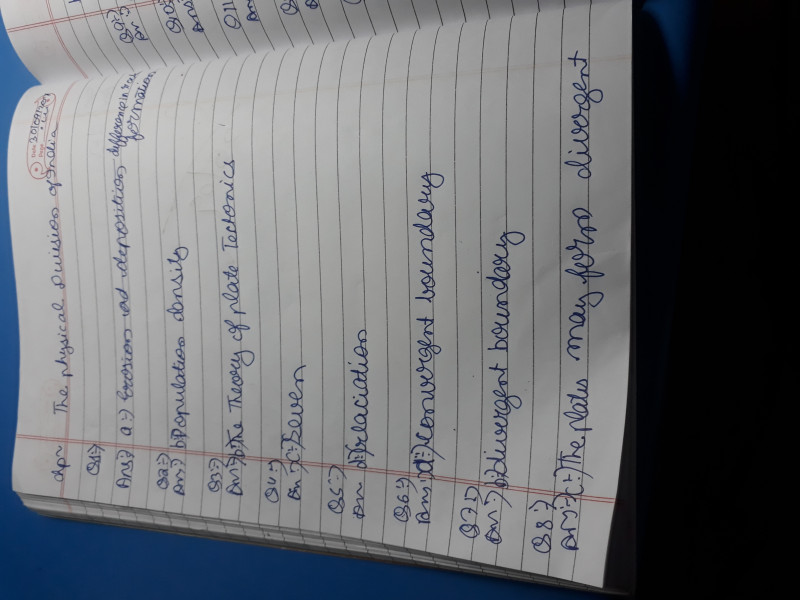 Date 30/09/
Page
chp~ The physical Division of India
Q1:->
Ans:-> a:-> Erosion and deposition difference in rock
formation
Q2:->
An:-> b) Population density
Q3:->
An:-> b) The Theory of plate Tectonics
Q4:->
An:-> c:- Seven
Q5:->
An d) Glaciation
Q6:->
An:-> d:-> convergent boundary
Q7:->
An:-> a) Divergent boundary
Q8:->
An:-> c:-> The plates may form divergent
Q9:->
An
An:->
Q11
An:->